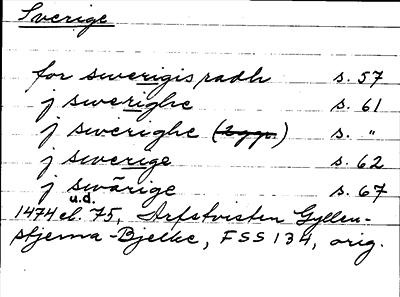 Sverige
for swerigis radh s. 57
j swerighe s. 61
j swerighe ( ) s. "
j swerige s. 62
j swärige s. 67
u.d.
1474 el. 75, Arfstvisten Gyllen-
stjerna-Bjelke, FSS 134, orig.